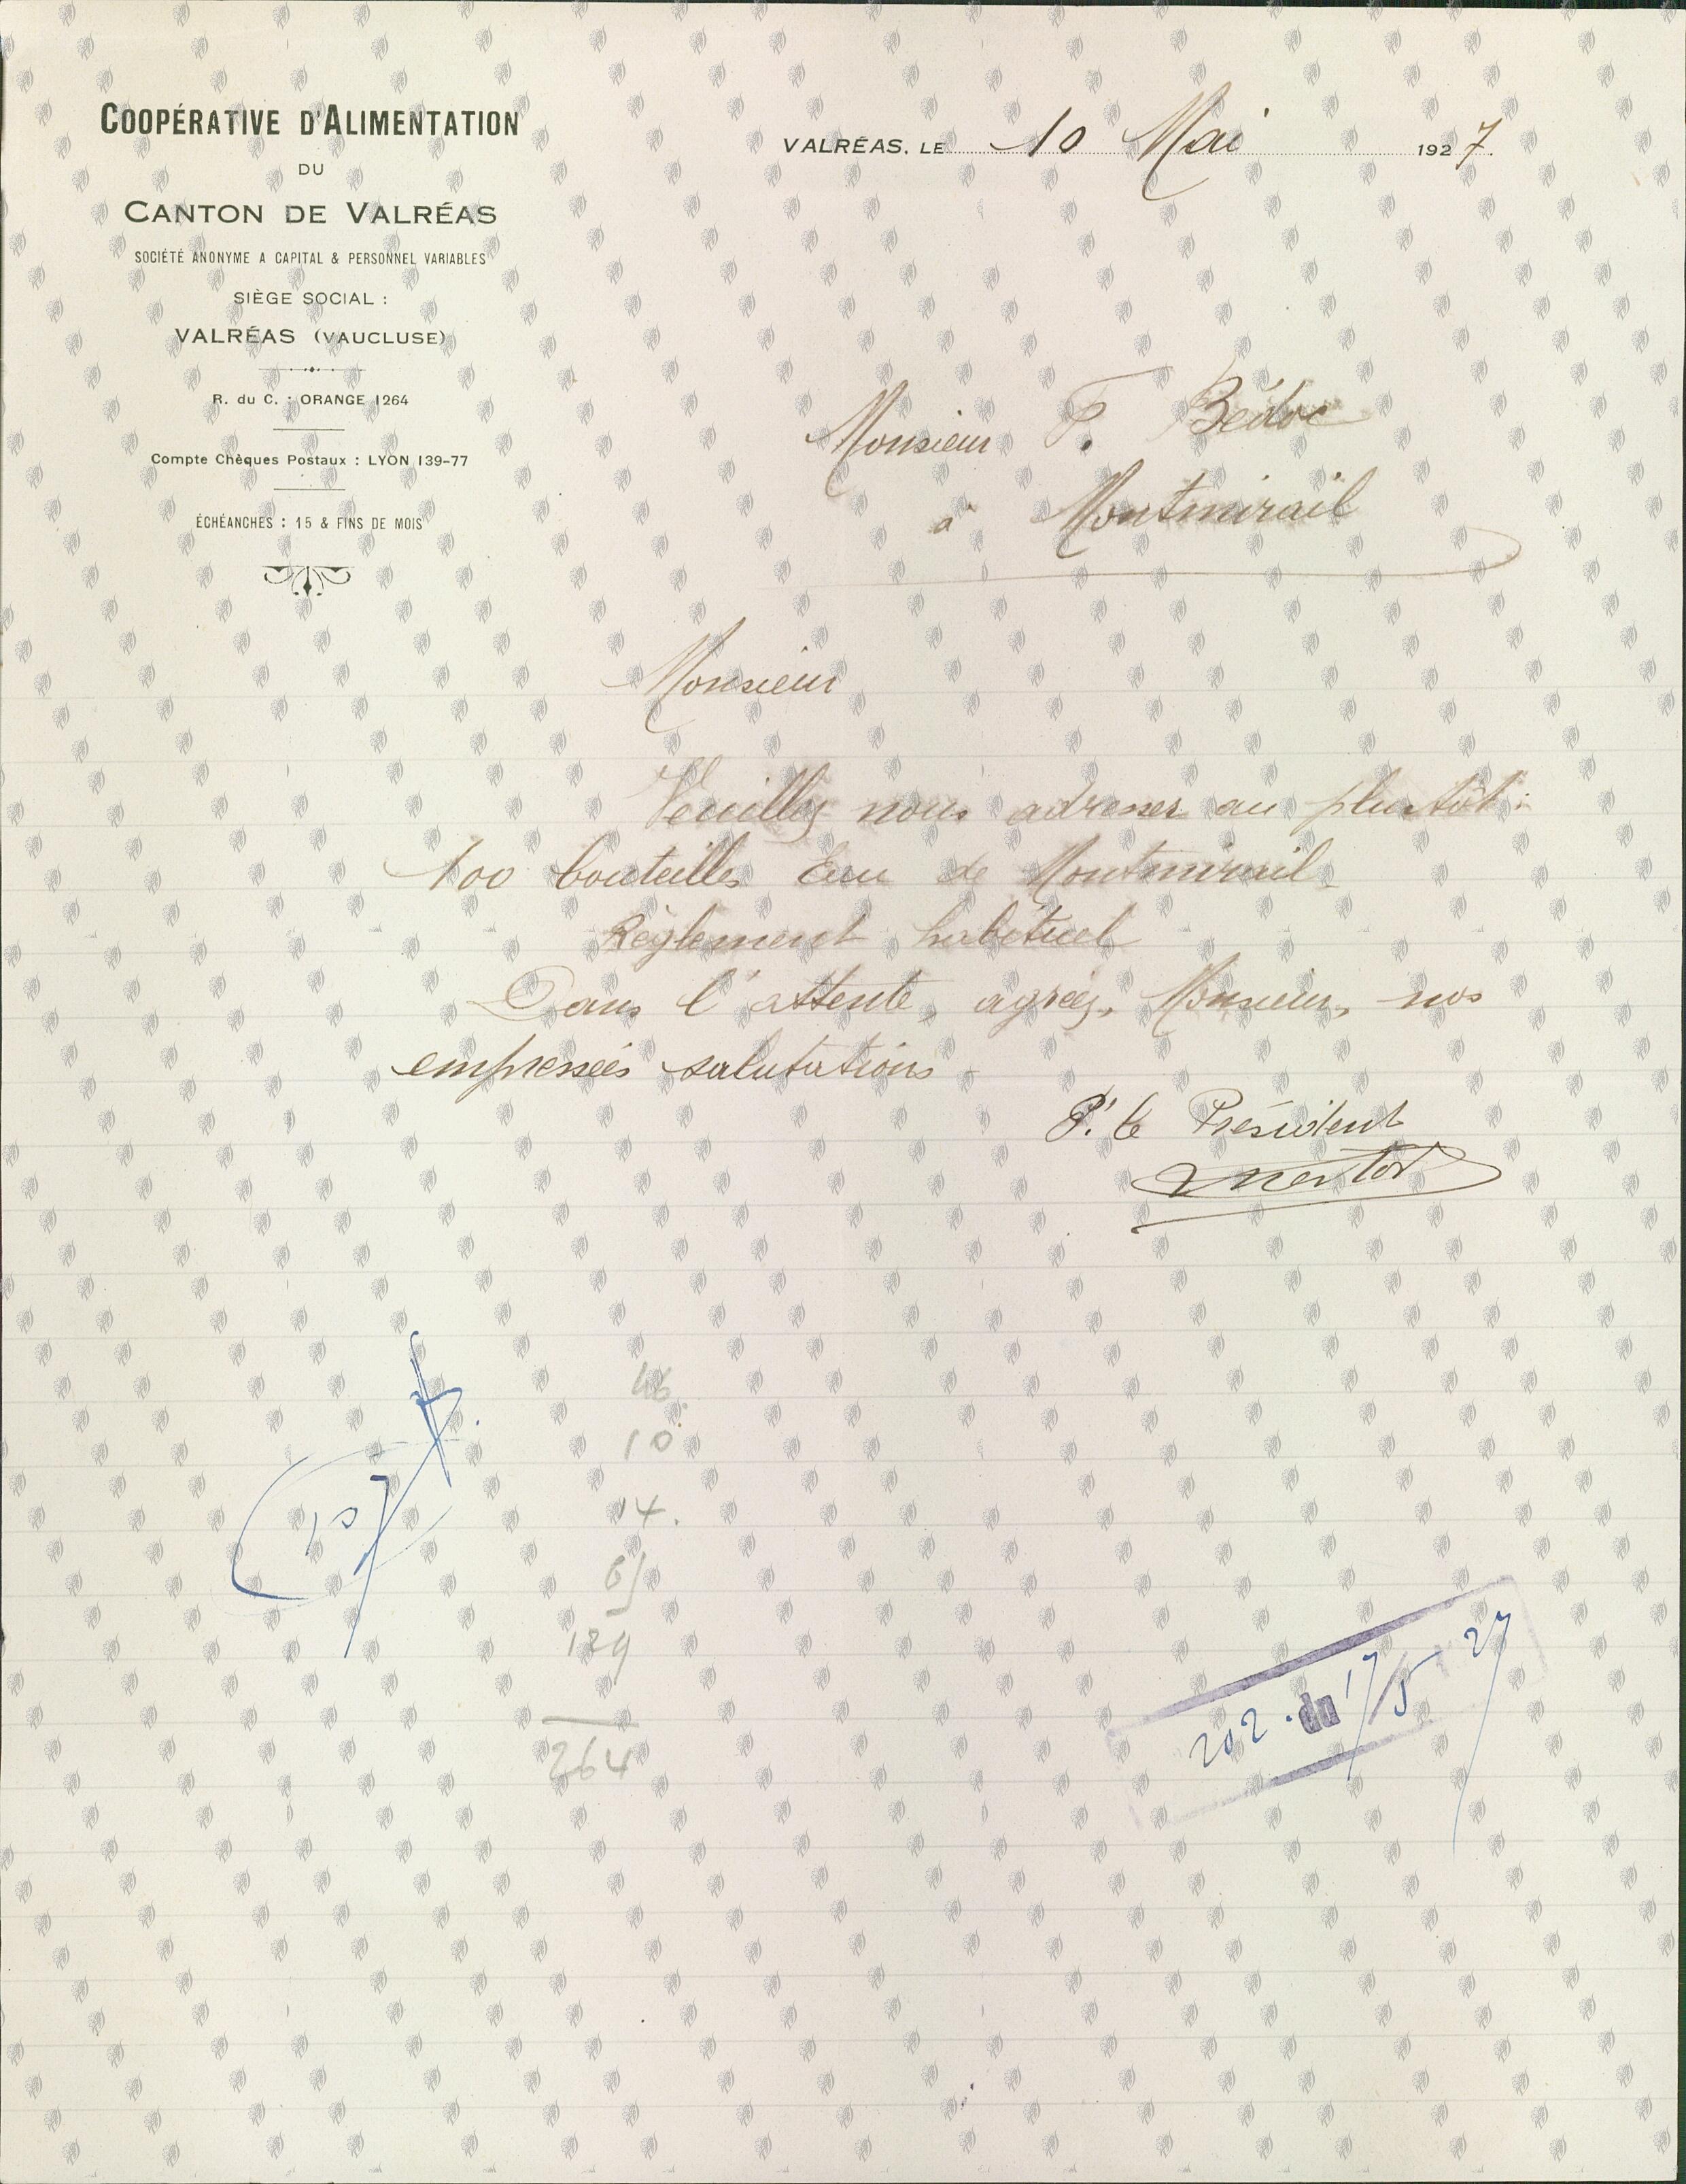 COOPÉRATIVE D'ALIMENTATION
DU
CANTON DE VALRÉAS
SOCIÉTÉ ANONYME A CAPITAL & PERSONNEL VARIABLES
SIÈGE SOCIAL :
VALRÉAS (VAUCLUSE)
R. du C. : ORANGE 1264
Compte Chèques Postaux : LYON 139-77
ÉCHÉANCHES : 15 & FINS DE MOIS
VALRÉAS, LE 10 Mai 1927.
Monsieur F. Bédoc
à Montmirail
Monsieur
Veuillez nous adresser au plus tôt :
100 bouteilles Eau de Montmirail
Règlement habituel
Dans l'attente, agréez, Monsieur, nos
empressées salutations.
P. le Président
10
14.
129
264
202 . du 17/5 27